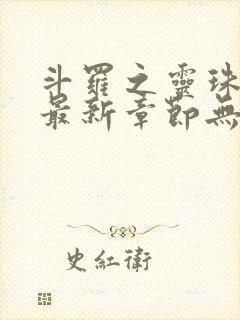 斗羅之靈珠
最新章節無
史紅衛